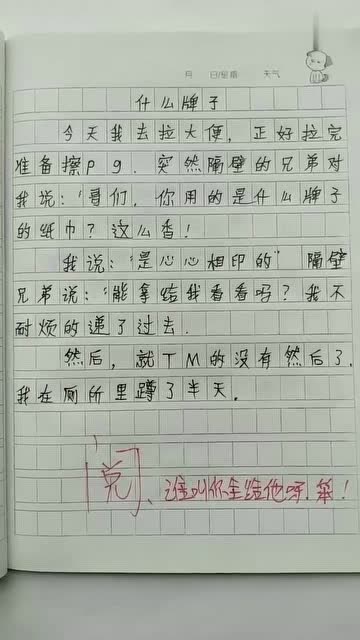 月 日/星期 天气
什么牌子
今天我去拉大便，正好拉完
准备擦pg．突然隔壁的兄弟对
我说：“哥们，你用的是什么牌子
的纸巾？这么香！
我说：“是心心相印的”隔壁
兄弟说：“能拿给我看看吗？我不
耐烦的递了过去．
然后，就TM的没有然后了．
我在厕所里蹲了半天．
阅、谁叫你全给他呀．笨！